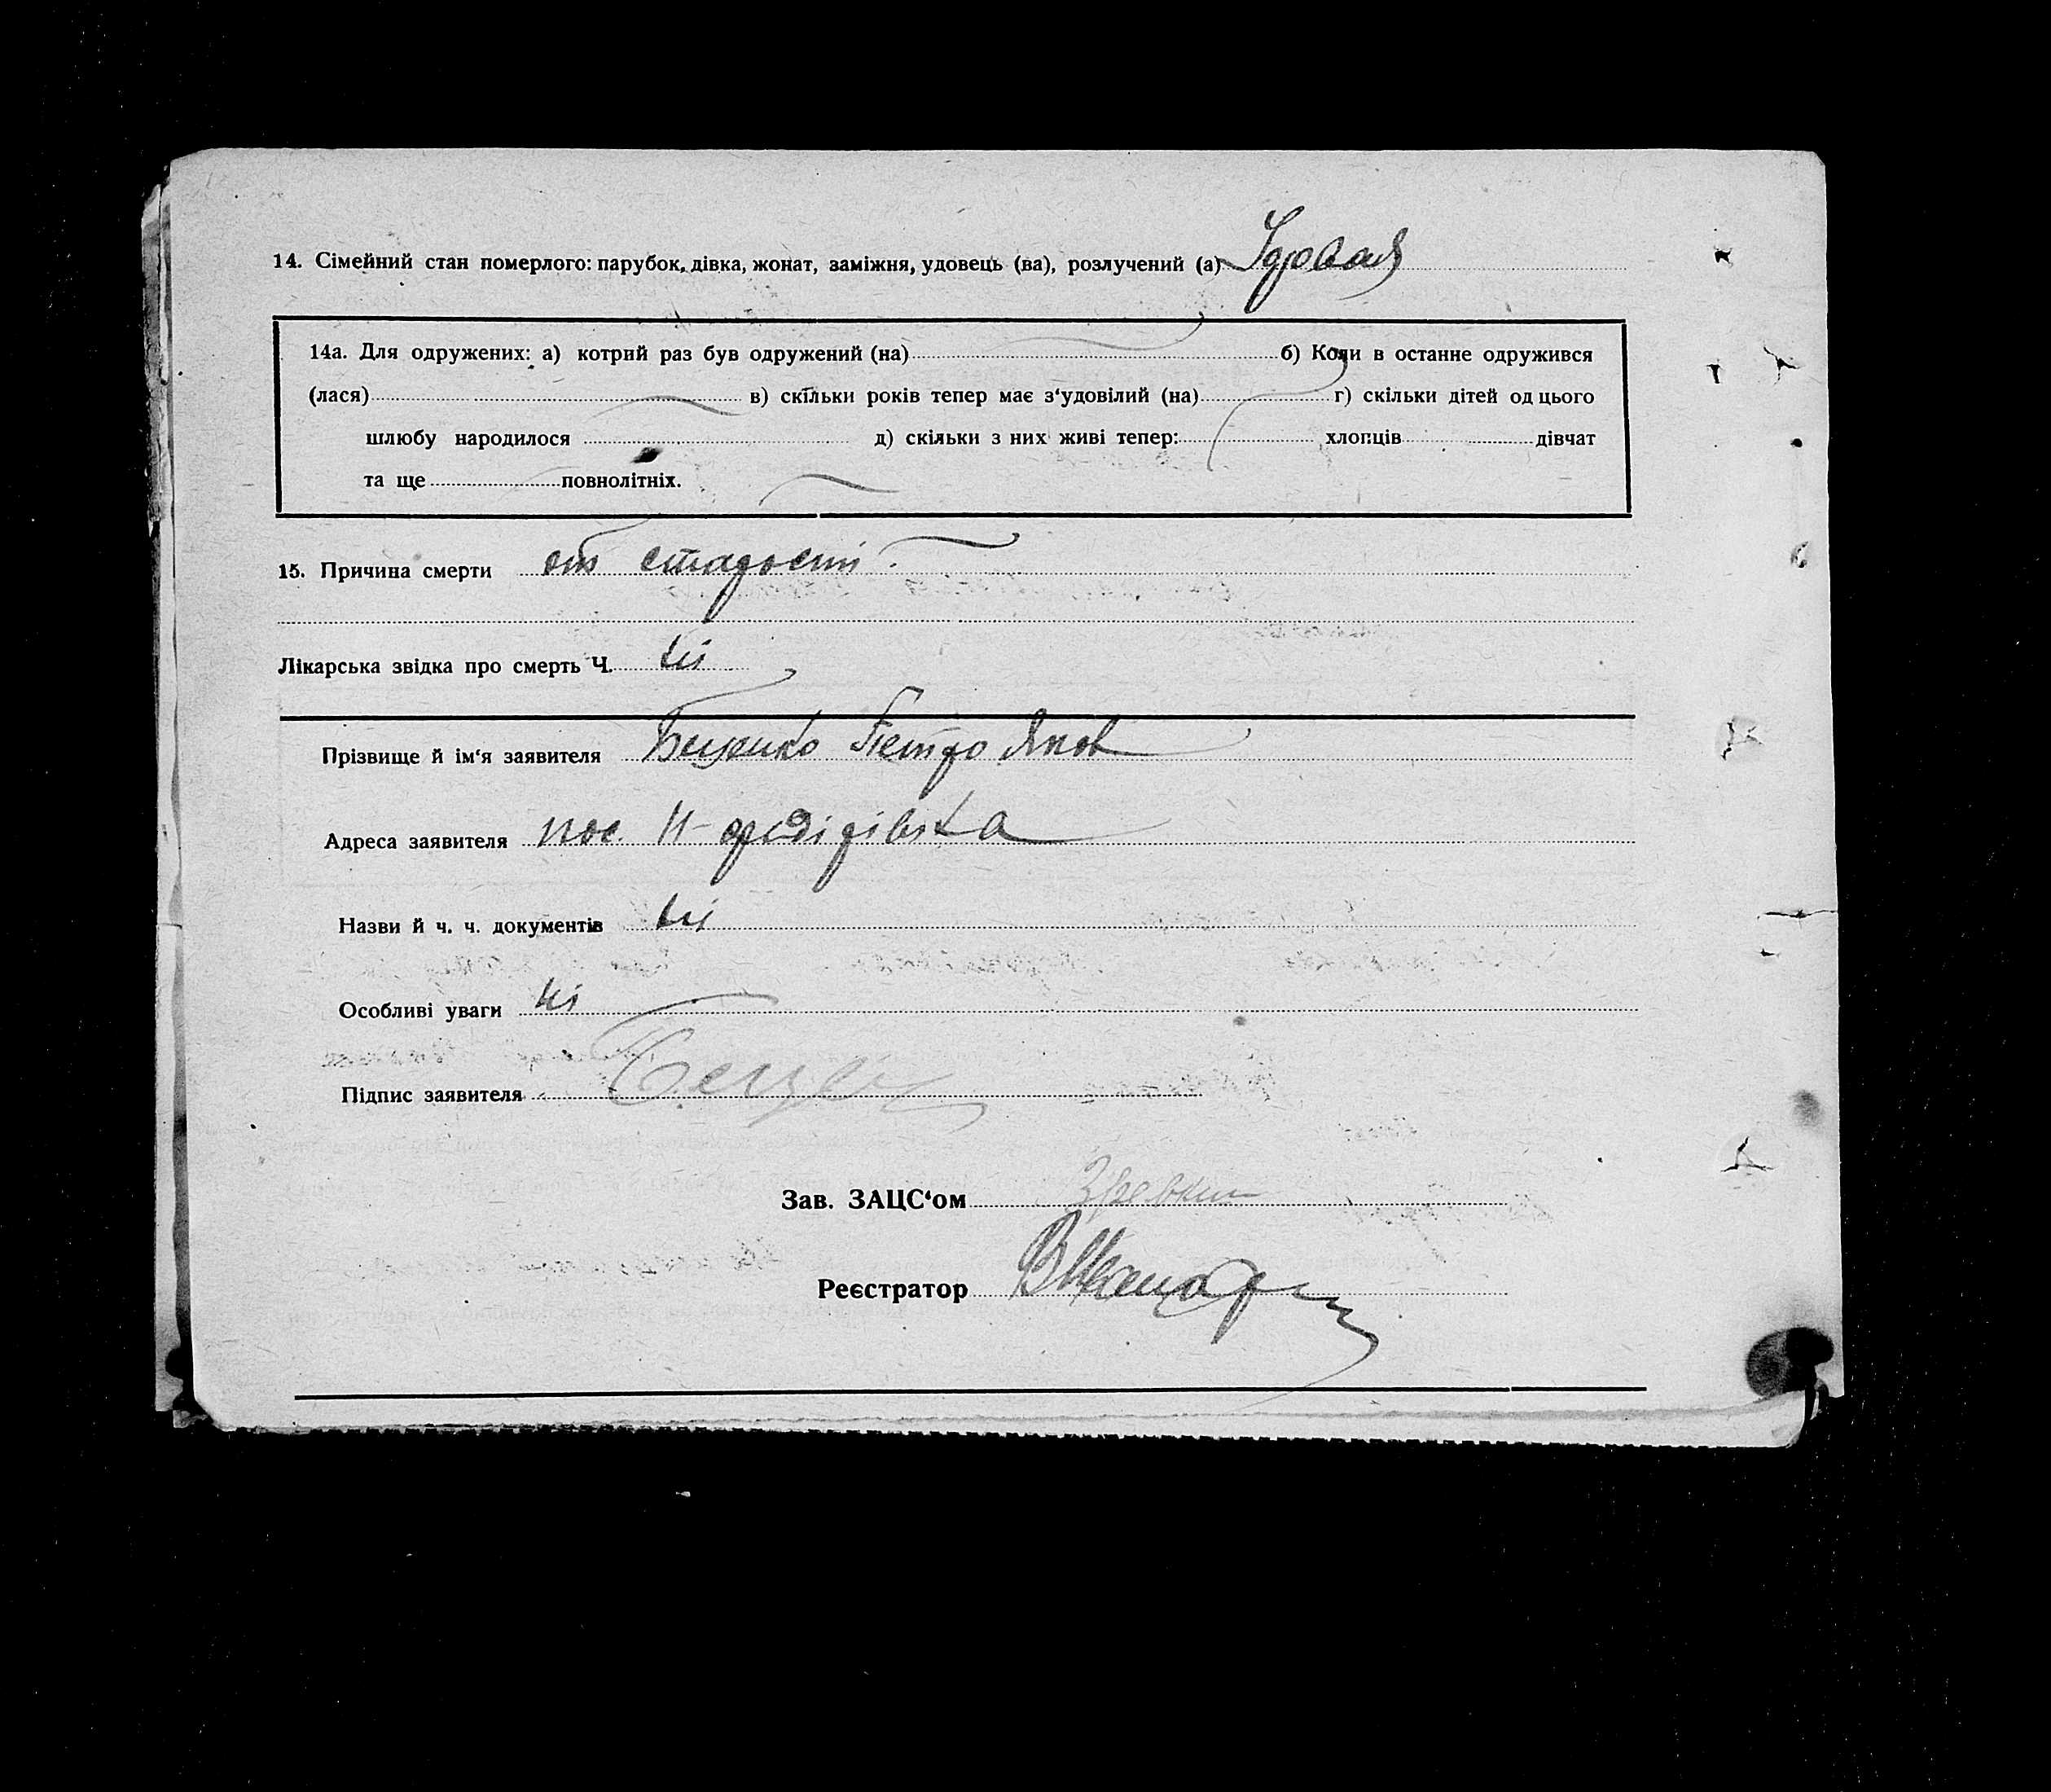 14. Сімейний стан померлого: парубок, дівка, жонат, заміжня, удовець (ва), розлучений (а)
14а. Для одружених: а) котрий раз був одружений (на) б) Коли в останне одружився
(лася) в) скільки років тепер має з‘удовілий (на) г) скільки дітей од цього
шлюбу народилося д) скільки з них живі тепер: хлопців дівчат
та ще повнолітніх.
15. Причина смерти от старости
Лікарська звідка про смерть Ч. ні
Прізвище й ім‘я заявителя Беценко Петро Яков
Адреса заявителя пос.
Назви й ч. ч. документів ні
Особливі уваги ні
Підпис заявителя Бецен
Зав. ЗАЦС‘ом
Реєстратор